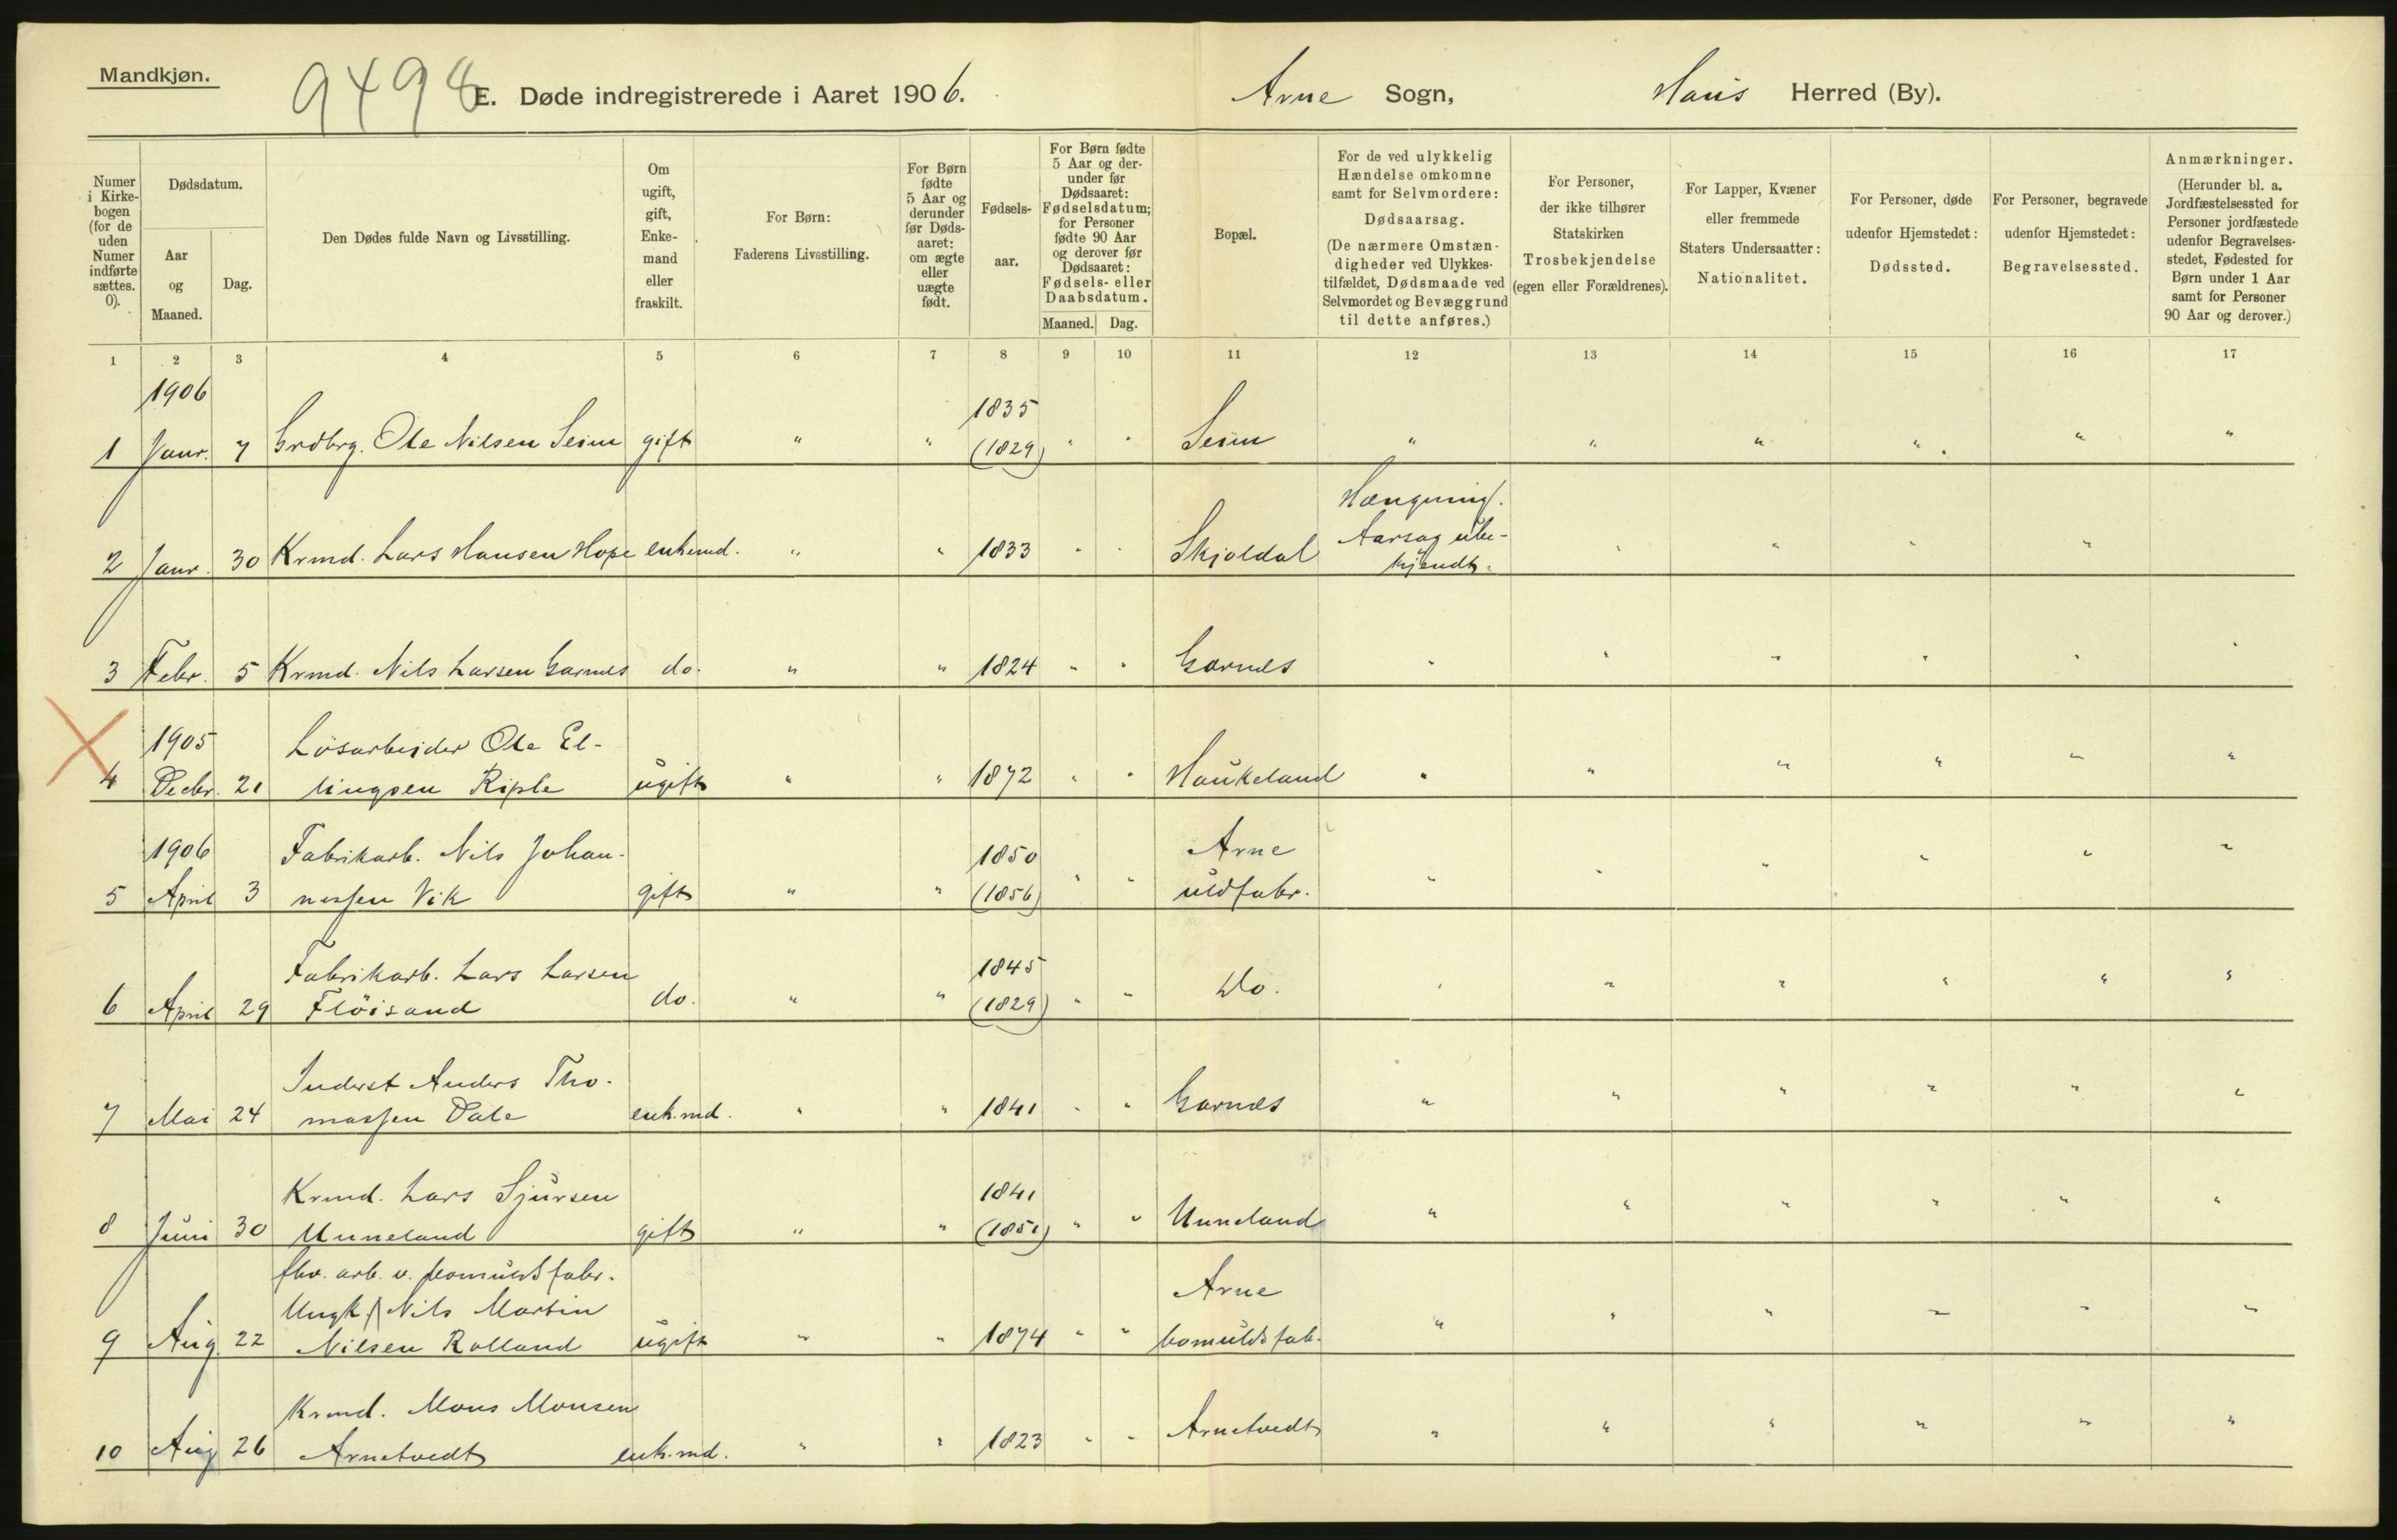 Mandkjøn.
9498
E. Døde indregistrerede i Aaret 1906.
Arne Sogn,
Haus Herred (By).
Numer i Kirkebogen (for de uden Numer indførte sættes. 0).
Dødsdatum.
Aar og Maaned.
Dag.
Den Dødes fulde Navn og Livsstilling.
Om ugift, gift, Enkemand eller fraskilt.
For Børn:
Faderens Livsstilling.
For Børn fødte 5 Aar og derunder før Dødsaaret: om ægte eller uægte født.
Fødselsaar.
For Børn fødte 5 Aar og derunder før Dødsaaret: Fødselsdatum; for Personer fødte 90 Aar og derover før Dødsaaret: Fødsels- eller Daabsdatum.
Maaned. Dag.
Bopæl.
For de ved ulykkelig Hændelse omkomne samt for Selvmordere: Dødsaarsag. (De nærmere Omstændigheder ved Ulykkestilfældet, Dødsmaade ved Selvmordet og Bevæggrund til dette anføres.)
For Personer, der ikke tilhører Statskirken Trosbekjendelse (egen eller Forældrenes).
For Lapper, Kvæner eller fremmede Staters Undersaatter: Nationalitet.
For Personer, døde udenfor Hjemstedet: Dødssted.
For Personer, begravede udenfor Hjemstedet: Begravelsessted.
Anmærkninger. (Herunder bl. a. Jordfæstelsessted for Personer jordfæstede udenfor Begravelsesstedet, Fødested for Børn under 1 Aar samt for Personer 90 Aar og derover.)
1 2 3 4 5 6 7 8 9 10 11 12 13 14 15 16 17
1906 1835
1 Janr. 7 Grdbrg. Ole Nilsen Seim gift " " (1829) " " Seim " " " " " "
Hængning.
2 Janr. 30 Krmd. Lars Hansen Hope enkemd. " " 1833 " " Skjoldal Aarsag ube-
kjendt. " " " "
3 Febr. 5 Krmd. Nils Larsen Garnes do. " " 1824 " " Garnes " " " " " "
1905 Løsarbeider Ole El-
4 Decbr. 21 lingsen Riple ugift " " 1872 " " Haukeland " " " " " "
1906 Fabrikarb. Nils Johan- 1850 Arne
5 April 3 nessen Vik gift " " (1856) " " uldfabr. " " " " " "
Fabrikarb. Lars Larsen 1845
6 April 29 Fløisand do. " " (1829) " " Do. " " " " " "
Inderst Anders Tho-
7 Mai 24 massen Dale enk.md. " " 1841 " " Garnes " " " " " "
Krmd. Lars Sjursen 1841
8 Juni 30 Unneland gift " " (1851) " " Unneland " " " " " "
fhv. arb. v. bomuldsfabr.
Ungk. Nils Martin Arne
9 Aug. 22 Nilsen Rolland ugift " " 1874 " " bomuldsfab. " " " " " "
Krmd. Mons Monsen
10 Aug 26 Arnetvedt enk.md. " " 1823 " " Arnetvedt " " " " " "